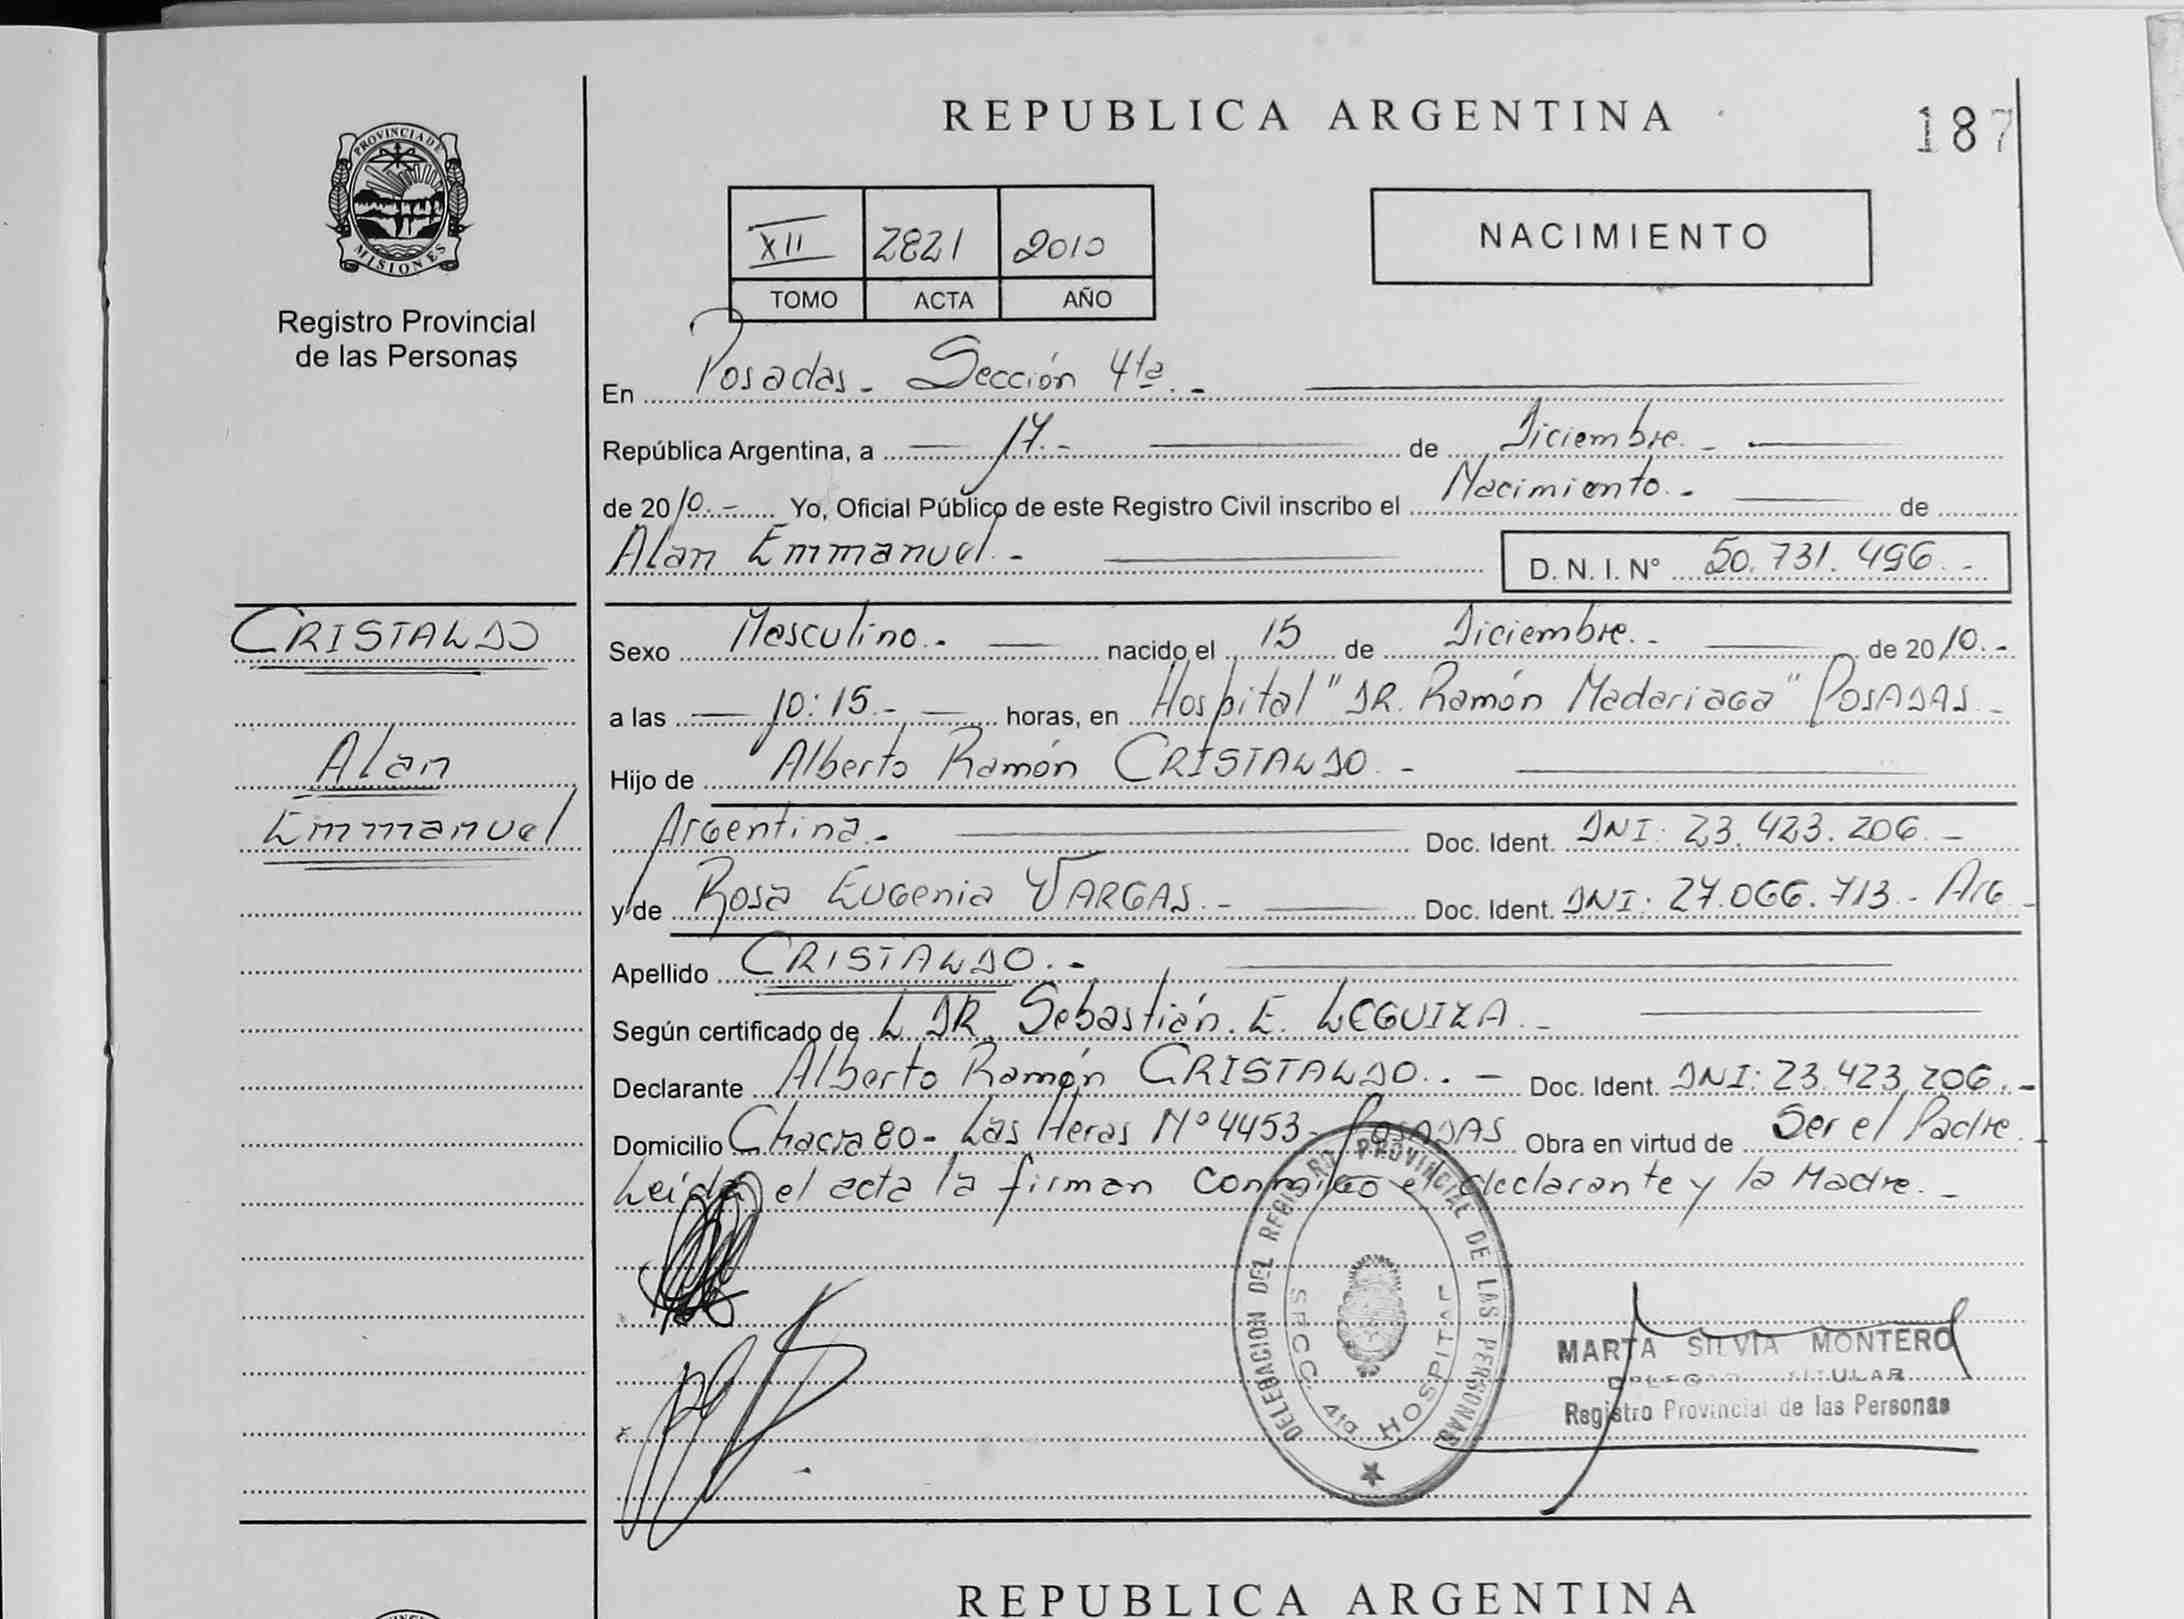 REPUBLICA ARGENTINA
187
PROVINCIA DE
MISIONES
Registro Provincial
de las Personas
XII 2821 2010
TOMO ACTA AÑO
NACIMIENTO
En Posadas - Sección 4ta. -
República Argentina, a 17. - de Diciembre. -
de 2010. - Yo, Oficial Público de este Registro Civil inscribo el Nacimiento. - de
Alan Emmanuel. -
D. N. I. N° 50.731.496. -
CRISTALDO
Alan
Emmanuel
Sexo Masculino. - nacido el 15 de Diciembre. - de 2010. -
a las 10:15. - horas, en Hospital "DR. Ramón Madariaga" POSADAS. -
Hijo de Alberto Ramón CRISTALDO. -
Argentina. - Doc. Ident. DNI: 23.423.206. -
y de Rosa Eugenia VARGAS. - Doc. Ident. DNI: 27.066.713. - Arg. -
Apellido CRISTALDO. -
Según certificado de L. DR. Sebastián. E. LEGUIZA. -
Declarante Alberto Ramón CRISTALDO. . - Doc. Ident. DNI: 23.423.206. -
Domicilio Chacra 80 - Las Heras N° 4453 - POSADAS Obra en virtud de Ser el Padre. -
Leída el acta la firman conmigo el declarante y la Madre. -
DELEGACION DEL REGISTRO PROVINCIAL DE LAS PERSONAS
SECC. 4ta HOSPITAL
MARTA SILVIA MONTERO
TITULAR
Registro Provincial de las Personas
REPUBLICA ARGENTINA